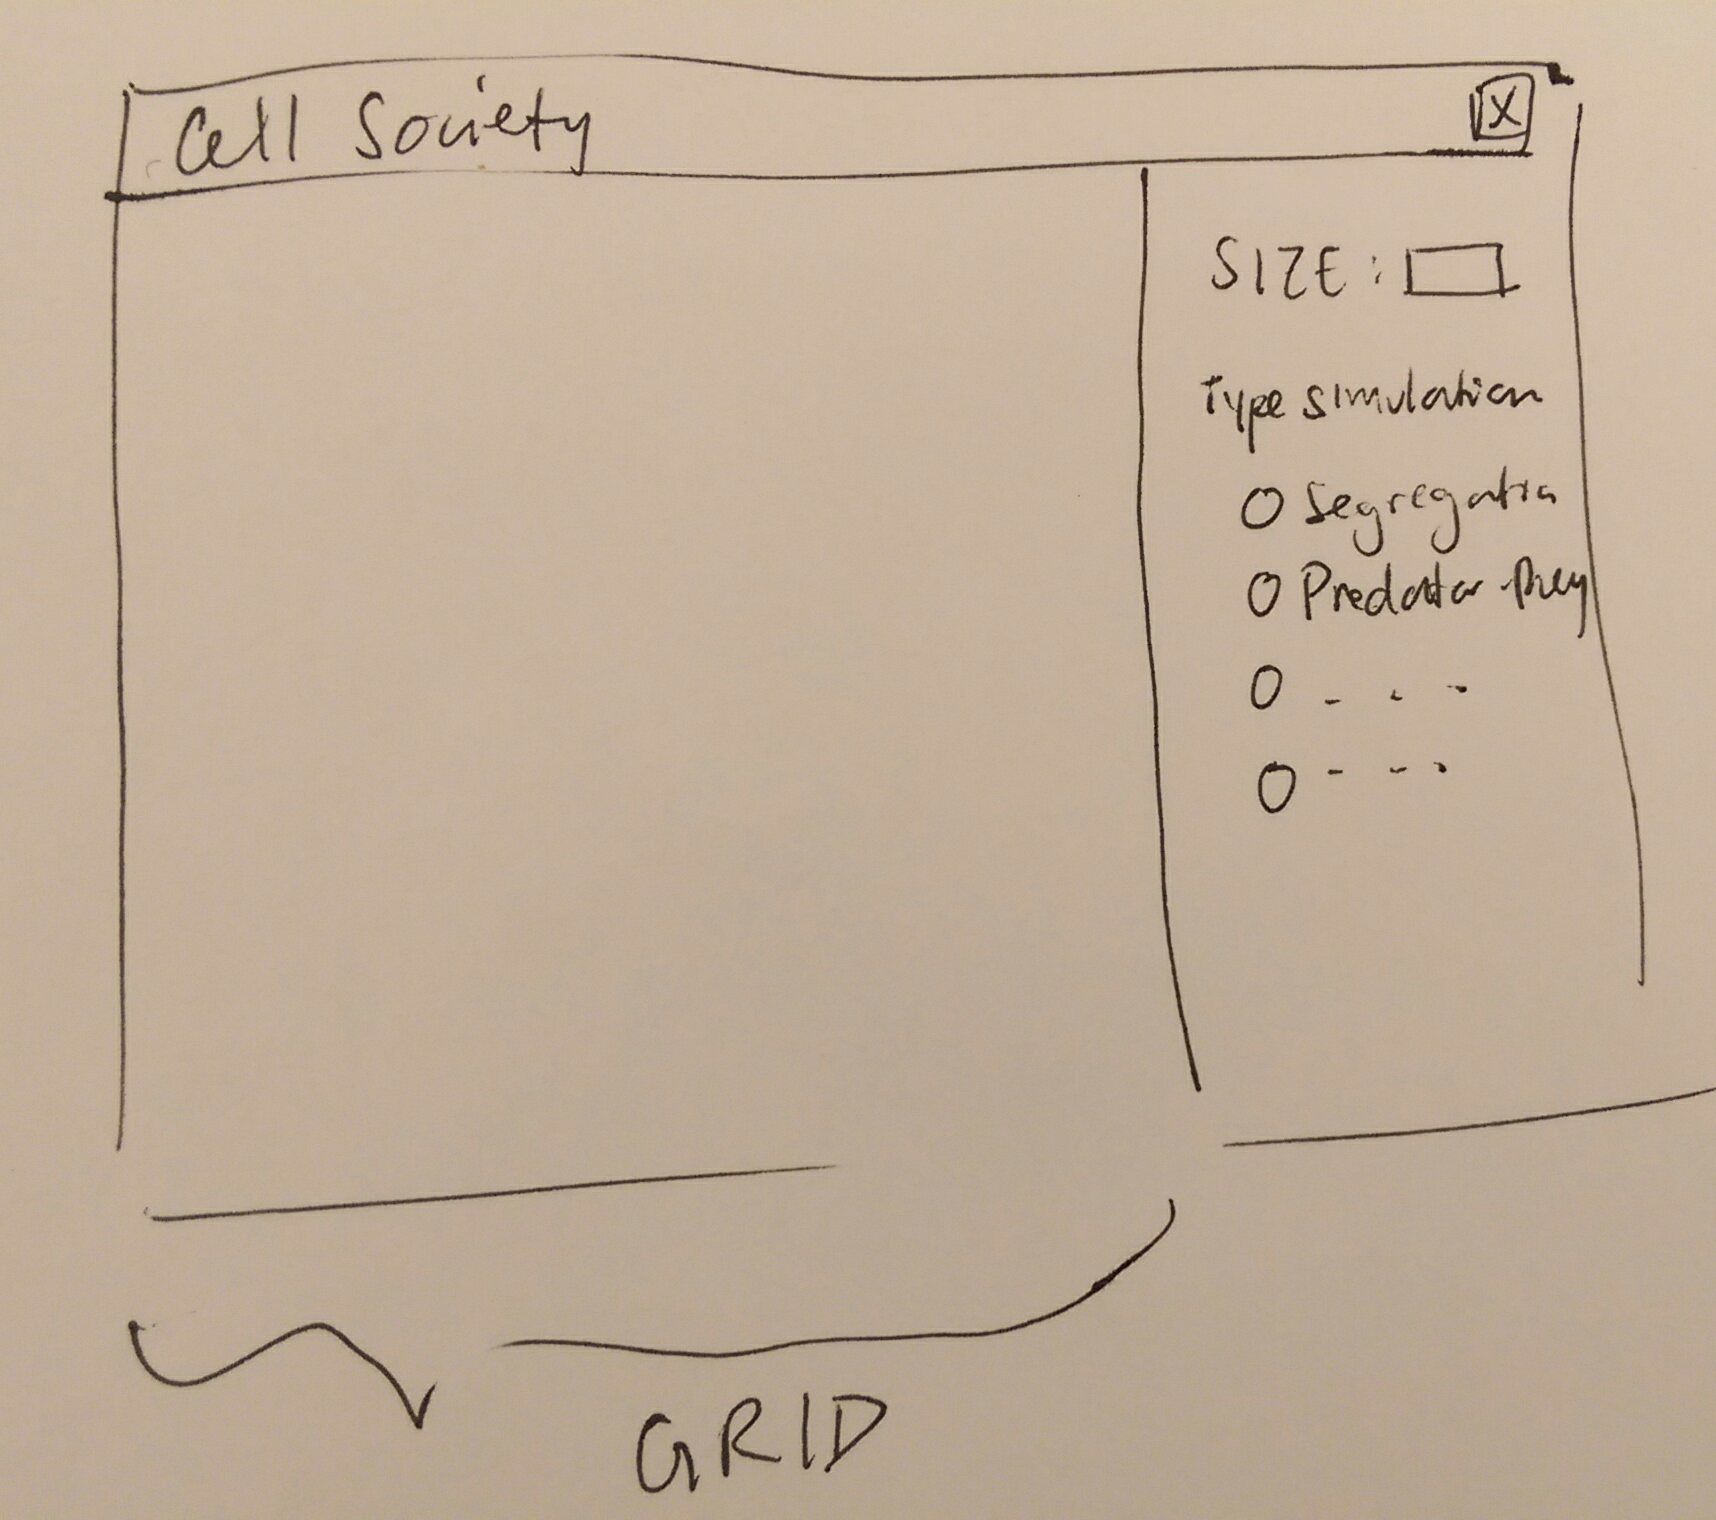 Cell Society
X
SIZE:
Type simulation
Segregation
Predator-Prey
- - -
- - -
GRID